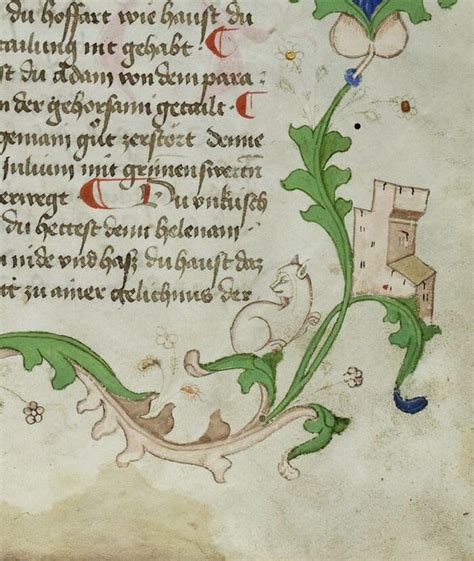 du hoffart wie haust du
tailung nit gehabt ·
st du Adam von dem para
n der gehorsam getailt ·
gemain gůt zerstört denne
Julium mit grimens werten
erwegt Du vnkúsch
du hettest denn helenam
n nide vnd hasz du haust daz
tt zu ainer gelichnus der